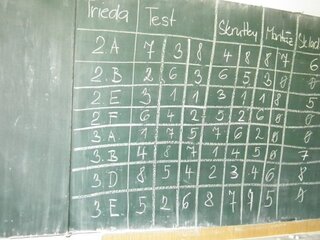 Trieda Test Skrutky Montáž Sklad
2.A 7 3 8 4 8 8 7 6
2.B 2 6 3 6 5 3 8 8
2.E 3 1 1 3 1 1 8 5
2.F 6 4 2 5 2 6 8 8
3.A 1 7 5 7 6 2 8 8
3.B 4 8 7 1 4 5 8 7
3.D 8 5 4 2 3 4 6 8
3.E. 5 2 6 8 7 9 5 8